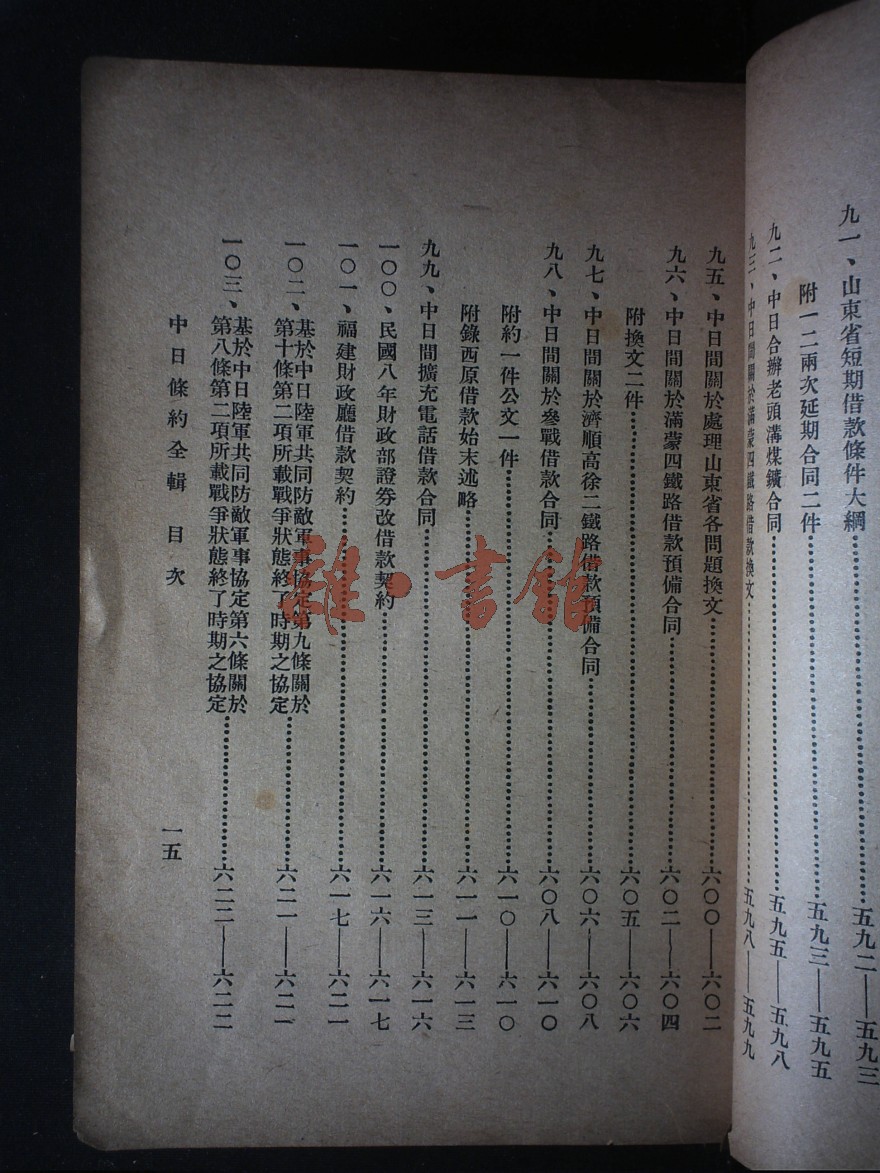 九一、山東省短期借款條件大綱……五九二——五九三
附一二兩次延期合同二件……五九三——五九五
九二、中日合辦老頭溝煤鑛合同……五九五——五九八
九三、中日間關於滿蒙四鐵路借款換文……五九八——五九九
九五、中日間關於處理山東省各問題換文……六〇〇——六〇二
九六、中日間關於滿蒙四鐵路借款預備合同……六〇二——六〇四
附換文二件……六〇五——六〇六
九七、中日間關於濟順高徐二鐵路借款預備合同……六〇六——六〇八
九八、中日間關於參戰借款合同……六〇八——六一〇
附約一件公文一件……六一〇——六一〇
附錄西原借款始末述略……六一一——六一三
九九、中日間擴充電話借款合同……六一三——六一六
一〇〇、民國八年財政部證券改借款契約……六一六——六一七
一〇一、福建財政廳借款契約……六一七——六二一
一〇二、基於中日陸軍共同防敵軍事協定第九條關於
第十條第二項所載戰爭狀態終了時期之協定……六二一——六二一
一〇三、基於中日陸軍共同防敵軍事協定第六條關於
第八條第二項所載戰爭狀態終了時期之協定……六二二——六二二
中日條約全輯 目次 一五
雜·書館